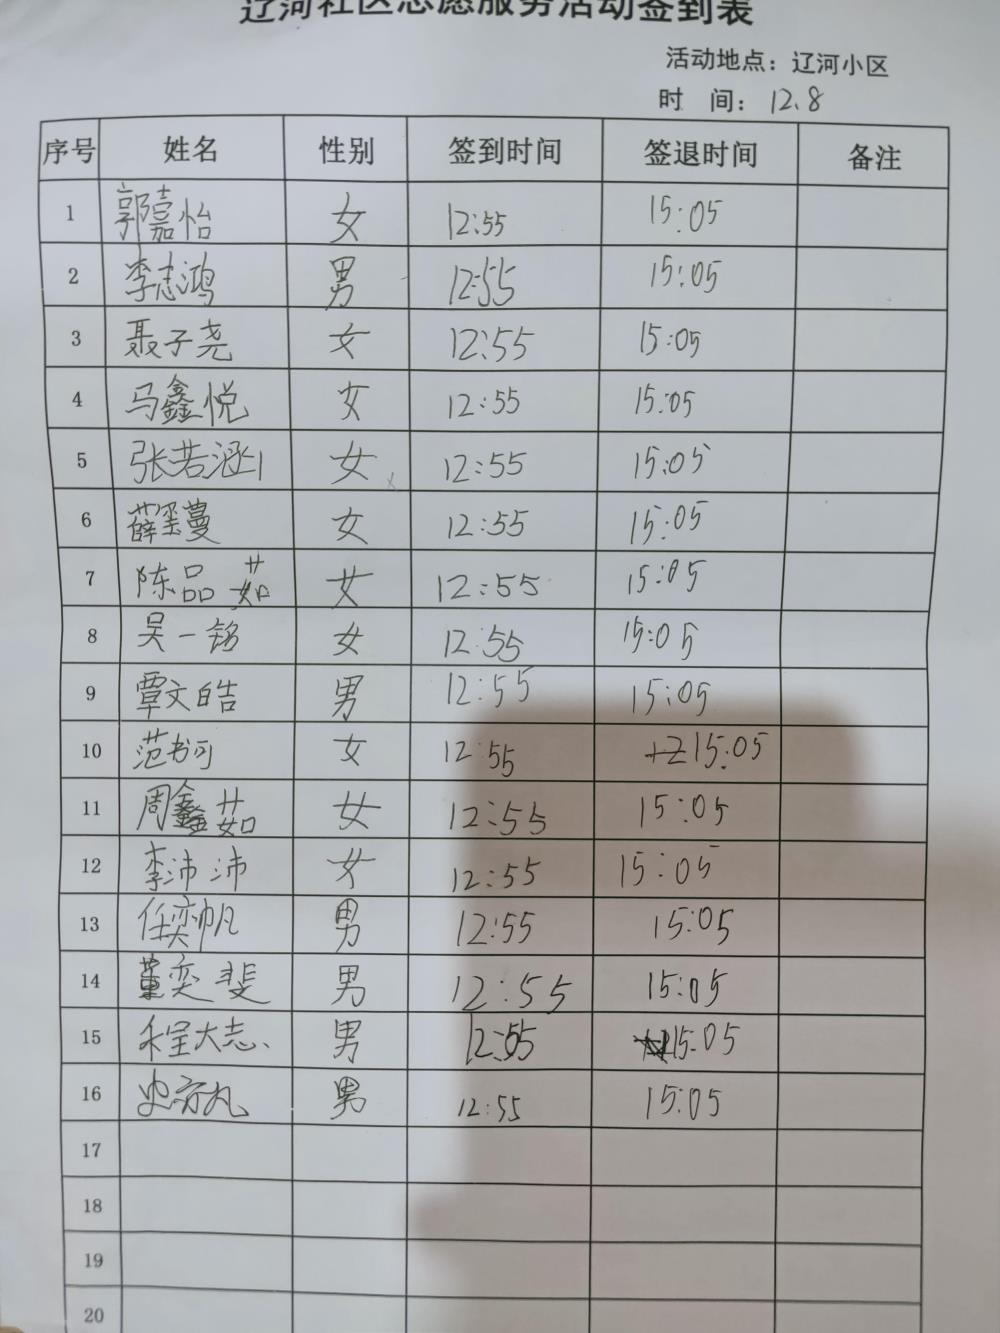 辽河社区志愿服务活动签到表
活动地点：辽河小区
时 间：12.8
序号 姓名 性别 签到时间 签退时间 备注
1 郭嘉怡 女 12:55 15:05
2 李志鸿 男 12:55 15:05
3 聂子尧 女 12:55 15:05
4 马鑫悦 女 12:55 15:05
5 张若涵 女 12:55 15:05
6 薛玺蔓 女 12:55 15:05
7 陈品茹 女 12:55 15:05
8 吴一铭 女 12:55 15:05
9 覃文皓 男 12:55 15:05
10 范书可 女 12:55 15:05
11 周鑫茹 女 12:55 15:05
12 李沛沛 女 12:55 15:05
13 任奕帆 男 12:55 15:05
14 董奕斐 男 12:55 15:05
15 程大志 男 12:55 15:05
16 史 男 12:55 15:05
17
18
19
20